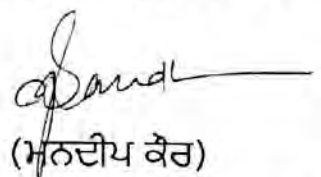 (ਮਨਦੀਪ ਕੌਰ)